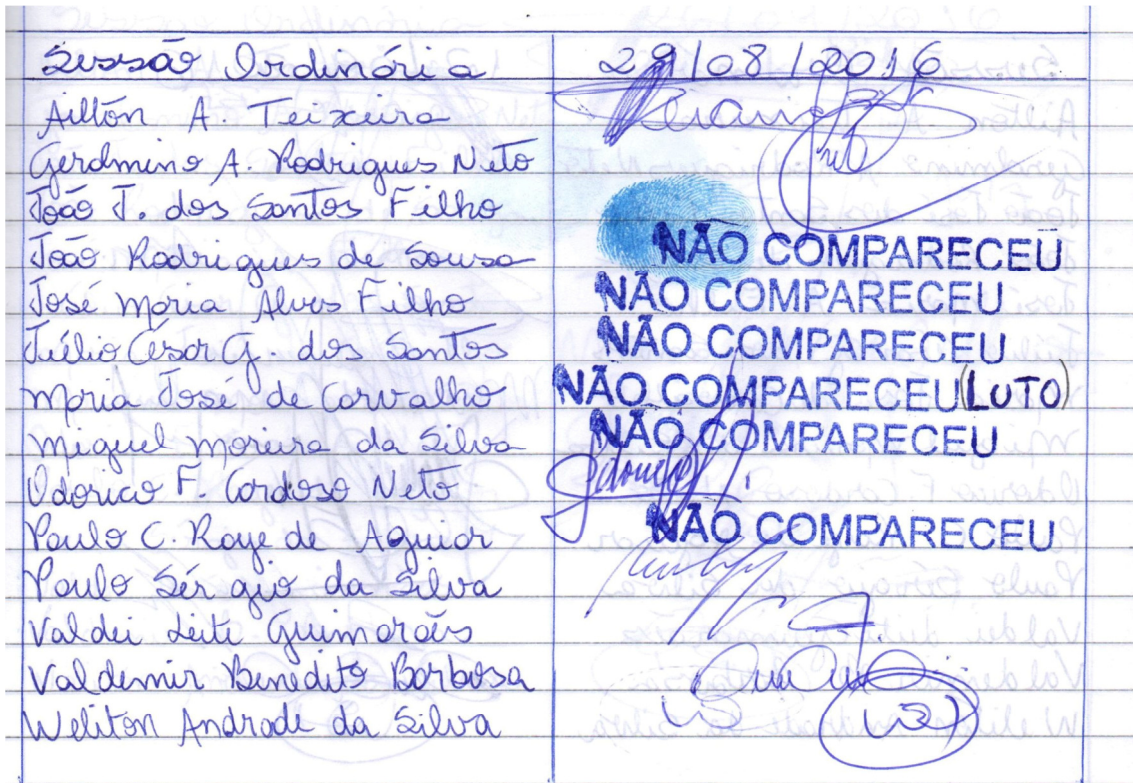 Sessão Ordinária 29/08/2016
Ailton A. Teixeira
Gerdmino A. Rodrigues Neto
João J. dos Santos Filho
João Rodrigues de Sousa NÃO COMPARECEU
José Maria Alves Filho NÃO COMPARECEU
Júlio César G. dos Santos NÃO COMPARECEU
Maria José de Carvalho NÃO COMPARECEU (LUTO)
Miguel Moreira da Silva NÃO COMPARECEU
Odorico F. Cardoso Neto
Paulo C. Raye de Aguiar NÃO COMPARECEU
Paulo Sérgio da Silva
Valdei Leite Guimarães
Valdemir Benedito Barbosa
Weliton Andrade da Silva